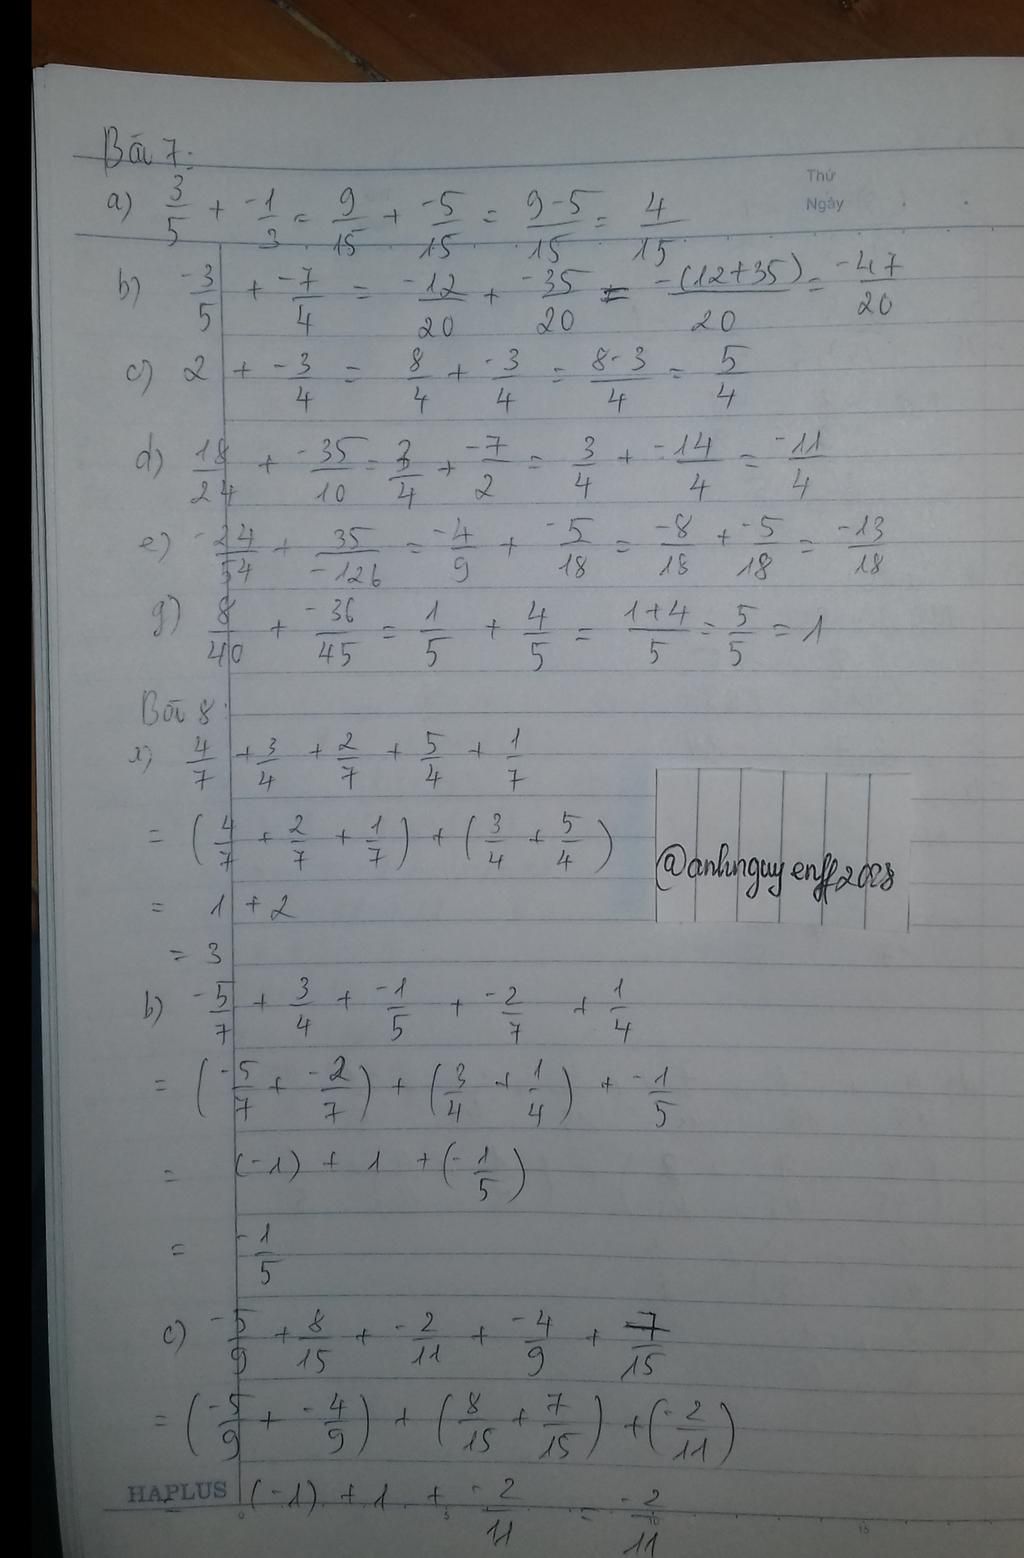 Bài 7:
Thứ
Ngày
a) 3/5 + -1/3 = 9/15 + -5/15 = 9-5/15 = 4/15
b) -3/5 + -7/4 = -12/20 + -35/20 = -(12+35)/20 = -47/20
c) 2 + -3/4 = 8/4 + -3/4 = 8-3/4 = 5/4
d) 18/24 + -35/10 = 3/4 + -7/2 = 3/4 + -14/4 = -11/4
e) -24/54 + 35/-126 = -4/9 + -5/18 = -8/18 + -5/18 = -13/18
g) 8/40 + -36/45 = 1/5 + 4/5 = 1+4/5 = 5/5 = 1
Bài 8:
a) 4/7 + 3/4 + 2/7 + 5/4 + 1/7
= (4/7 + 2/7 + 1/7) + (3/4 + 5/4)
@anhnguyenff2008
= 1 + 2
= 3
b) -5/7 + 3/4 + -1/5 + -2/7 + 1/4
= (-5/7 + -2/7) + (3/4 + 1/4) + -1/5
= (-1) + 1 + (-1/5)
= -1/5
c) -5/9 + 8/15 + -2/11 + -4/9 + 7/15
= (-5/9 + -4/9) + (8/15 + 7/15) + (-2/11)
HAPLUS
= (-1) + 1 + -2/11 = -2/11
0 5 10 15